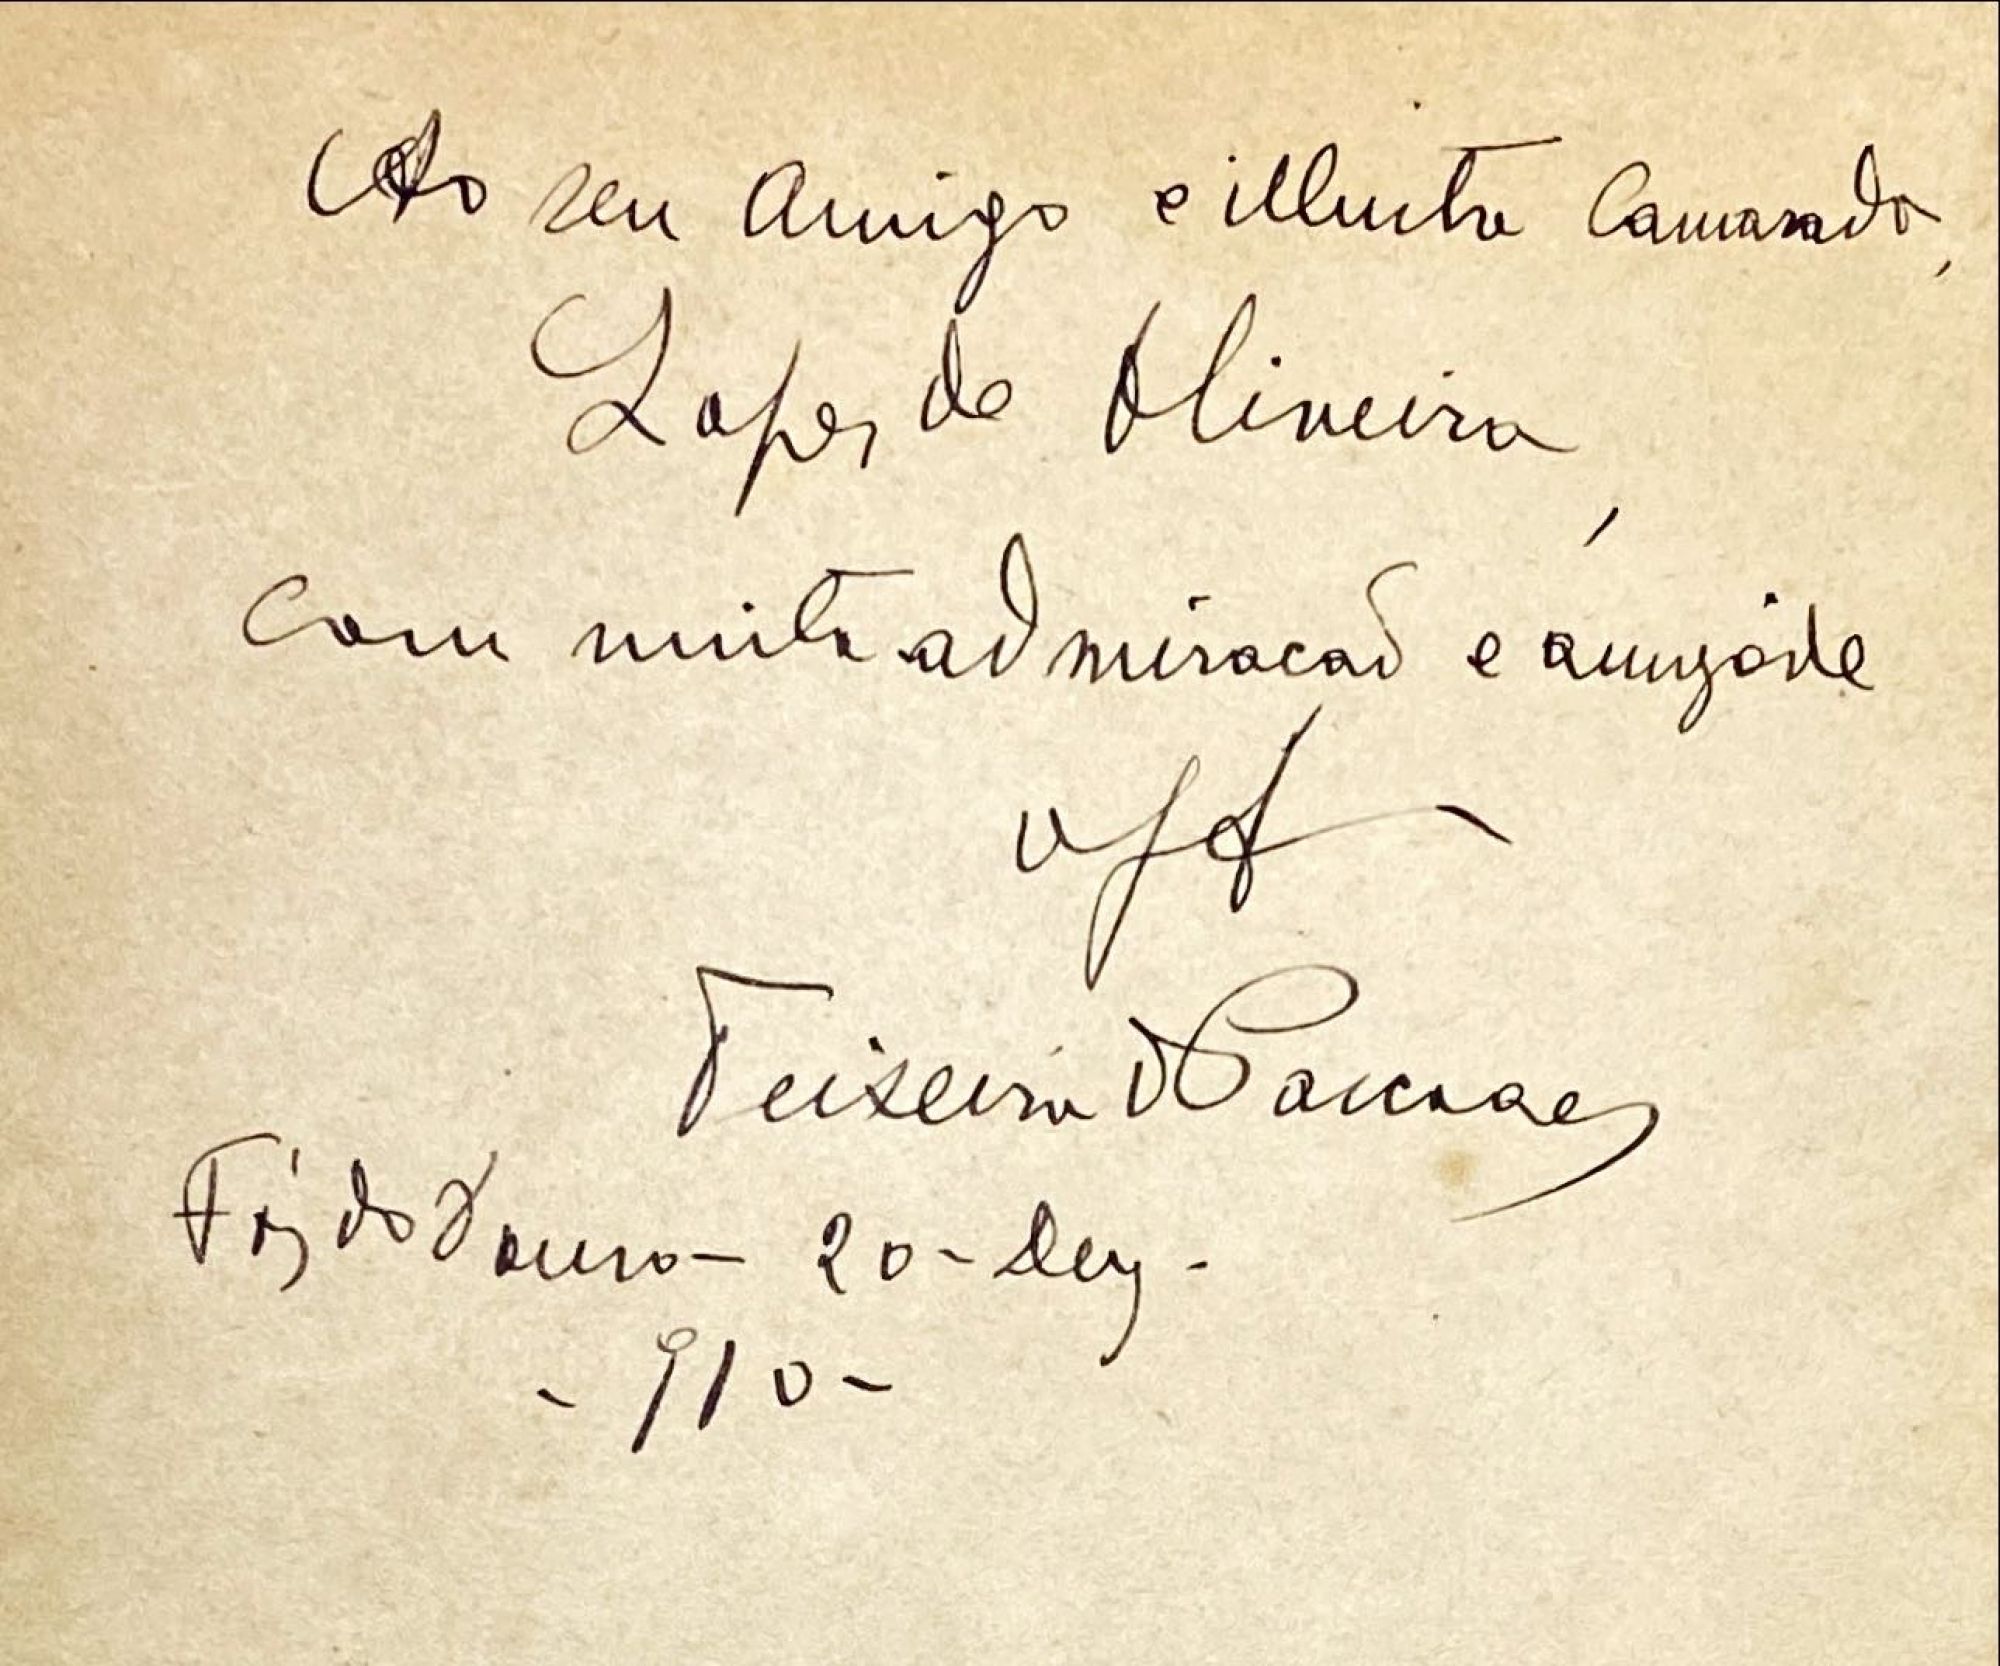 Ao seu Amigo e illustre Camarada,
Lopes de Oliveira,
com muita admiração e amizade
off.
Teixeira de Pascoaes
Fóz do Douro – 20 – Dez –
– 910 –